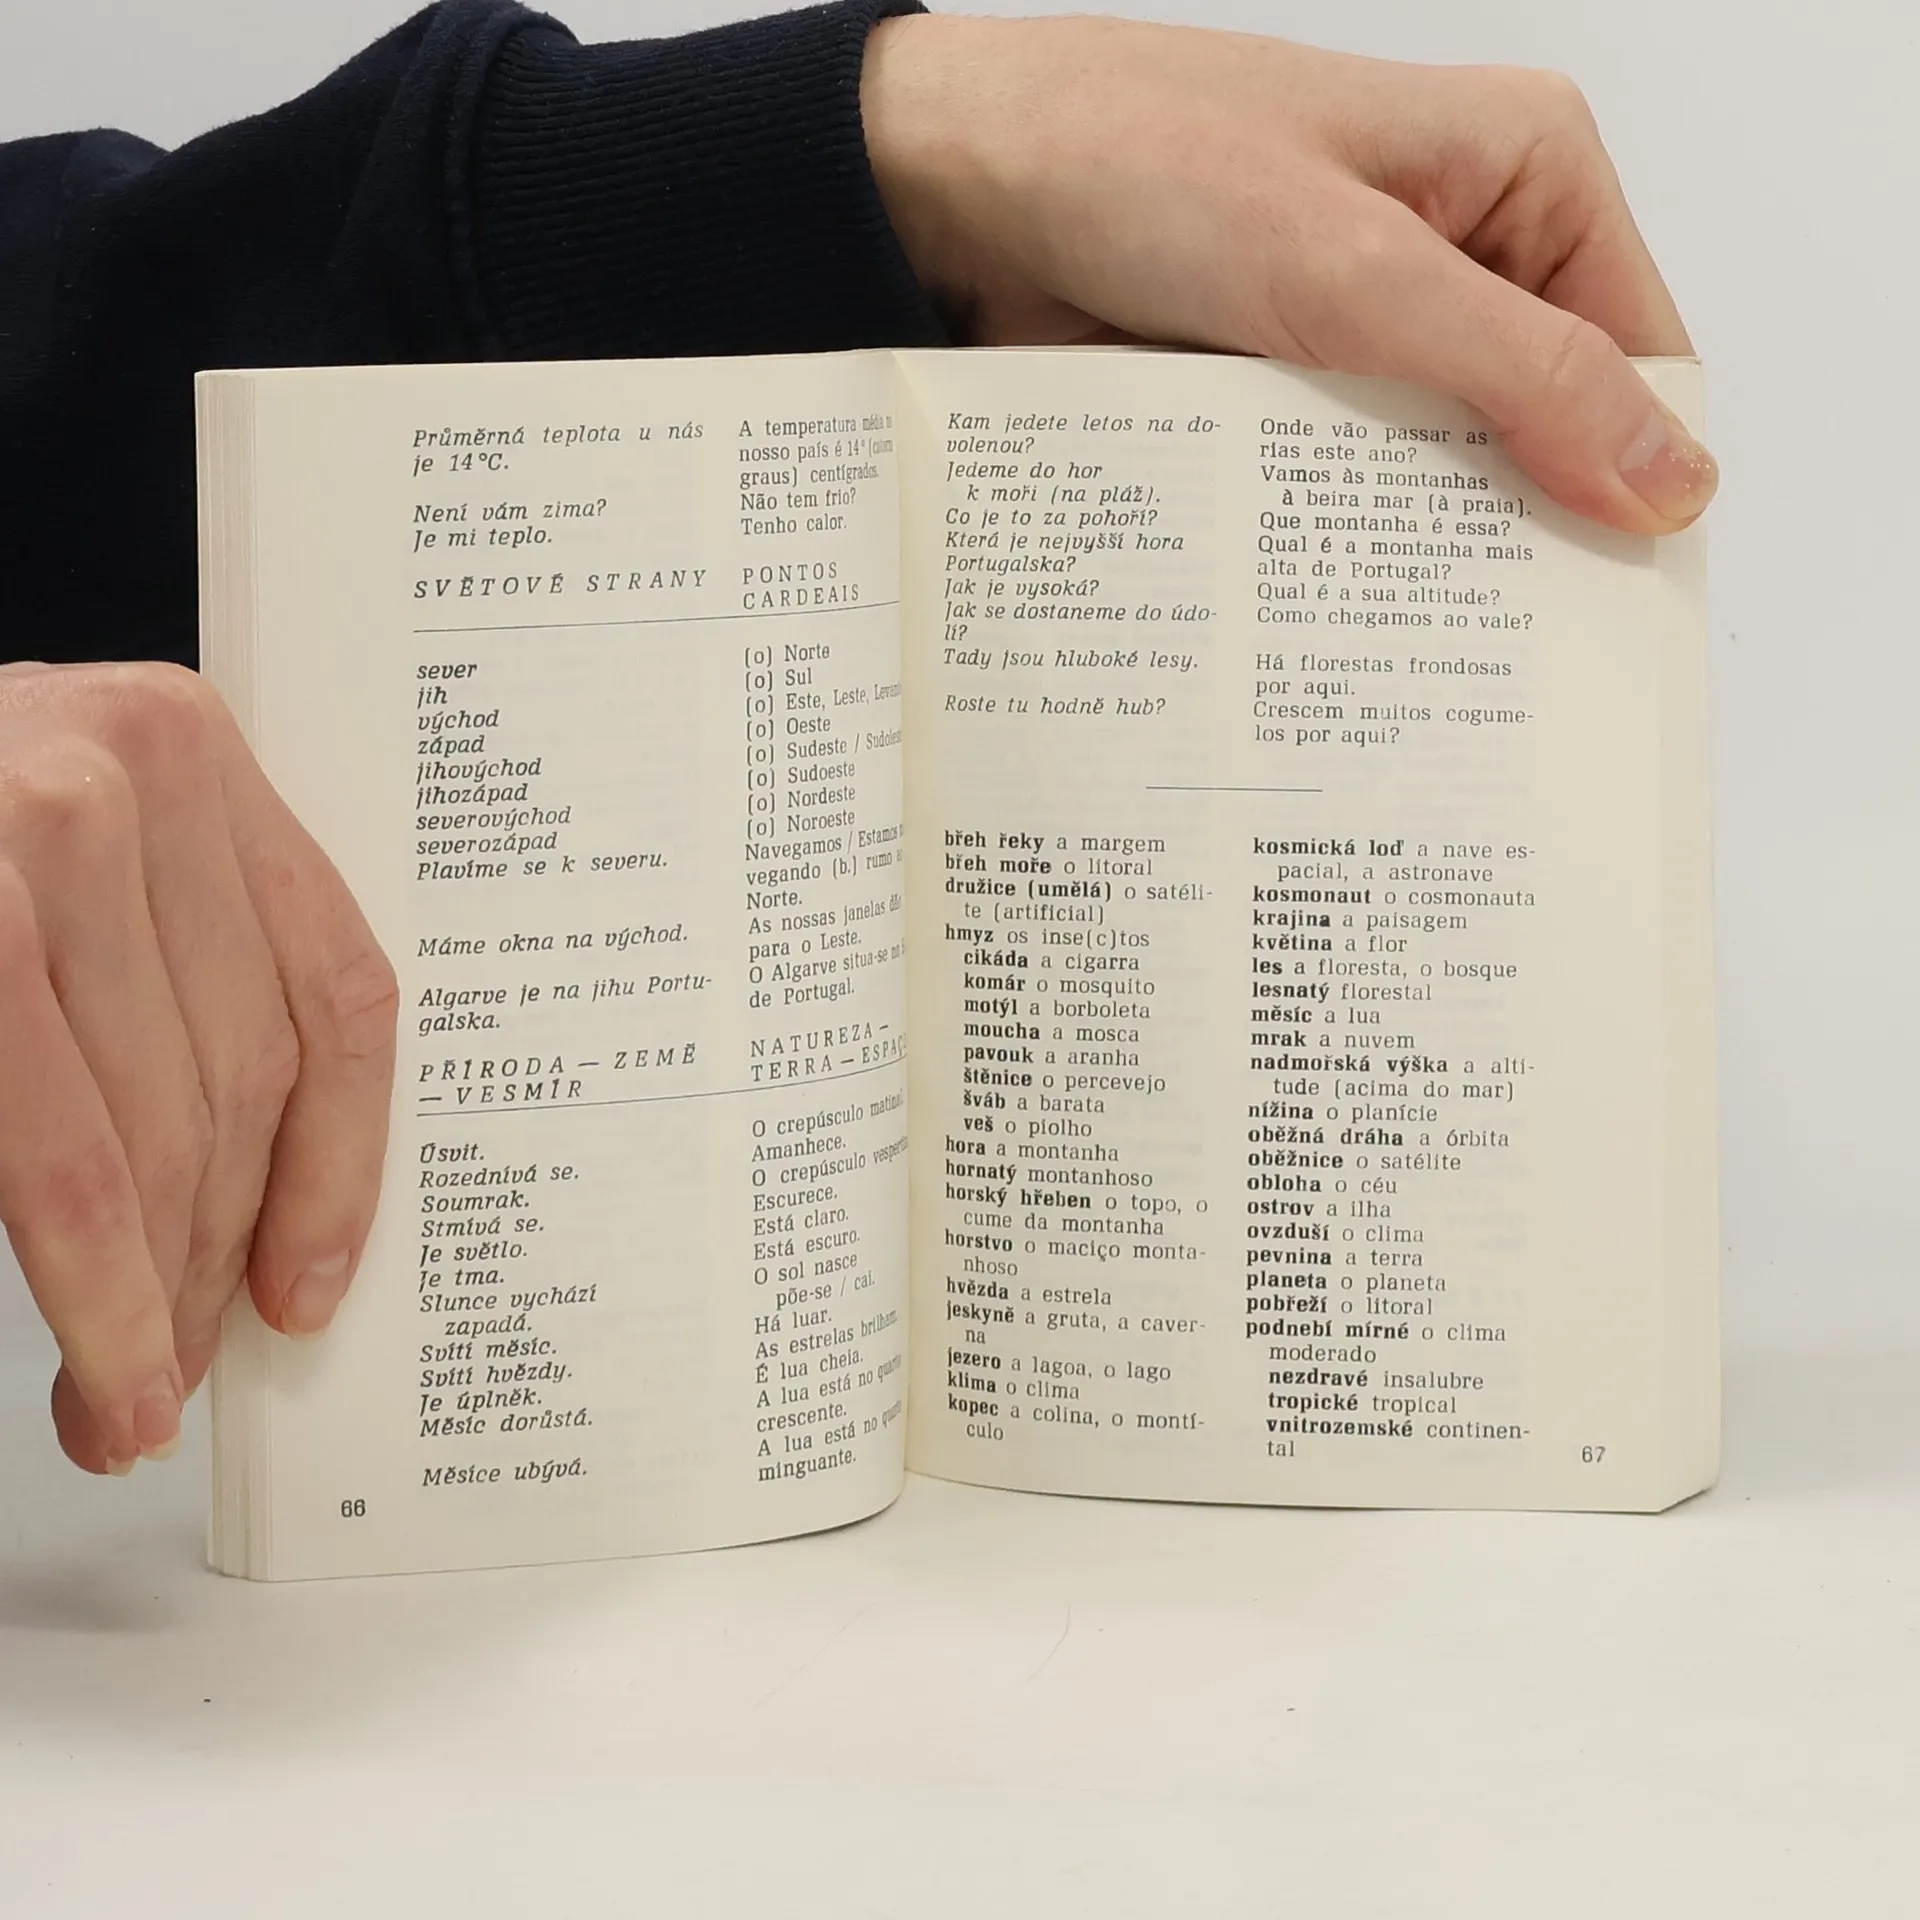 Průměrná teplota u nás
je 14°C.
Není vám zima?
Je mi teplo.
SVĚTOVÉ STRANY
sever
jih
východ
západ
jihovýchod
jihozápad
severovýchod
severozápad
Plavíme se k severu.
Máme okna na východ.
Algarve je na jihu Portu-
galska.
PŘÍRODA — ZEMĚ
— VESMÍR
Úsvit.
Rozednívá se.
Soumrak.
Stmívá se.
Je světlo.
Je tma.
Slunce vychází
zapadá.
Svítí měsíc.
Svítí hvězdy.
Je úplněk.
Měsíc dorůstá.
Měsíce ubývá.
66
A temperatura média
nosso país é 14°
graus) centígrados.
Não tem frio?
Tenho calor.
PONTOS
CARDEAIS
(o) Norte
(o) Sul
(o) Este, Leste,
(o) Oeste
(o) Sudeste /
(o) Sudoeste
(o) Nordeste
(o) Noroeste
Navegamos / Estamos
vegando (b.) rumo
Norte.
As nossas janelas dão
para o Leste.
O Algarve situa-se no
de Portugal.
NATUREZA —
TERRA — ESPAÇO
O crepúsculo matinal.
Amanhece.
O crepúsculo
Escurece.
Está claro.
Está escuro.
O sol nasce
põe-se / cai.
Há luar.
As estrelas brilham.
É lua cheia.
A lua está no
crescente.
A lua está no
minguante.
Kam jedete letos na do-
volenou?
Jedeme do hor
k moři (na pláž).
Co je to za pohoří?
Která je nejvyšší hora
Portugalska?
Jak je vysoká?
Jak se dostaneme do údo-
lí?
Tady jsou hluboké lesy.
Roste tu hodně hub?
Onde vão passar as
rias este ano?
Vamos às montanhas
à beira mar (à praia).
Que montanha é essa?
Qual é a montanha mais
alta de Portugal?
Qual é a sua altitude?
Como chegamos ao vale?
Há florestas frondosas
por aqui.
Crescem muitos cogume-
los por aqui?
břeh řeky a margem
břeh moře o litoral
družice (umělá) o satéli-
te (artificial)
hmyz os inse(c)tos
cikáda a cigarra
komár o mosquito
motýl a borboleta
moucha a mosca
pavouk a aranha
štěnice o percevejo
šváb a barata
veš o piolho
hora a montanha
hornatý montanhoso
horský hřeben o topo, o
cume da montanha
horstvo o maciço monta-
nhoso
hvězda a estrela
jeskyně a gruta, a caver-
na
jezero a lagoa, o lago
klima o clima
kopec a colina, o montí-
culo
kosmická loď a nave es-
pacial, a astronave
kosmonaut o cosmonauta
krajina a paisagem
květina a flor
les a floresta, o bosque
lesnatý florestal
měsíc a lua
mrak a nuvem
nadmořská výška a alti-
tude (acima do mar)
nížina o planície
oběžná dráha a órbita
oběžnice o satélite
obloha o céu
ostrov a ilha
ovzduší o clima
pevnina a terra
planeta o planeta
pobřeží o litoral
podnebí mírné o clima
moderado
nezdravé insalubre
tropické tropical
vnitrozemské continen-
tal
67